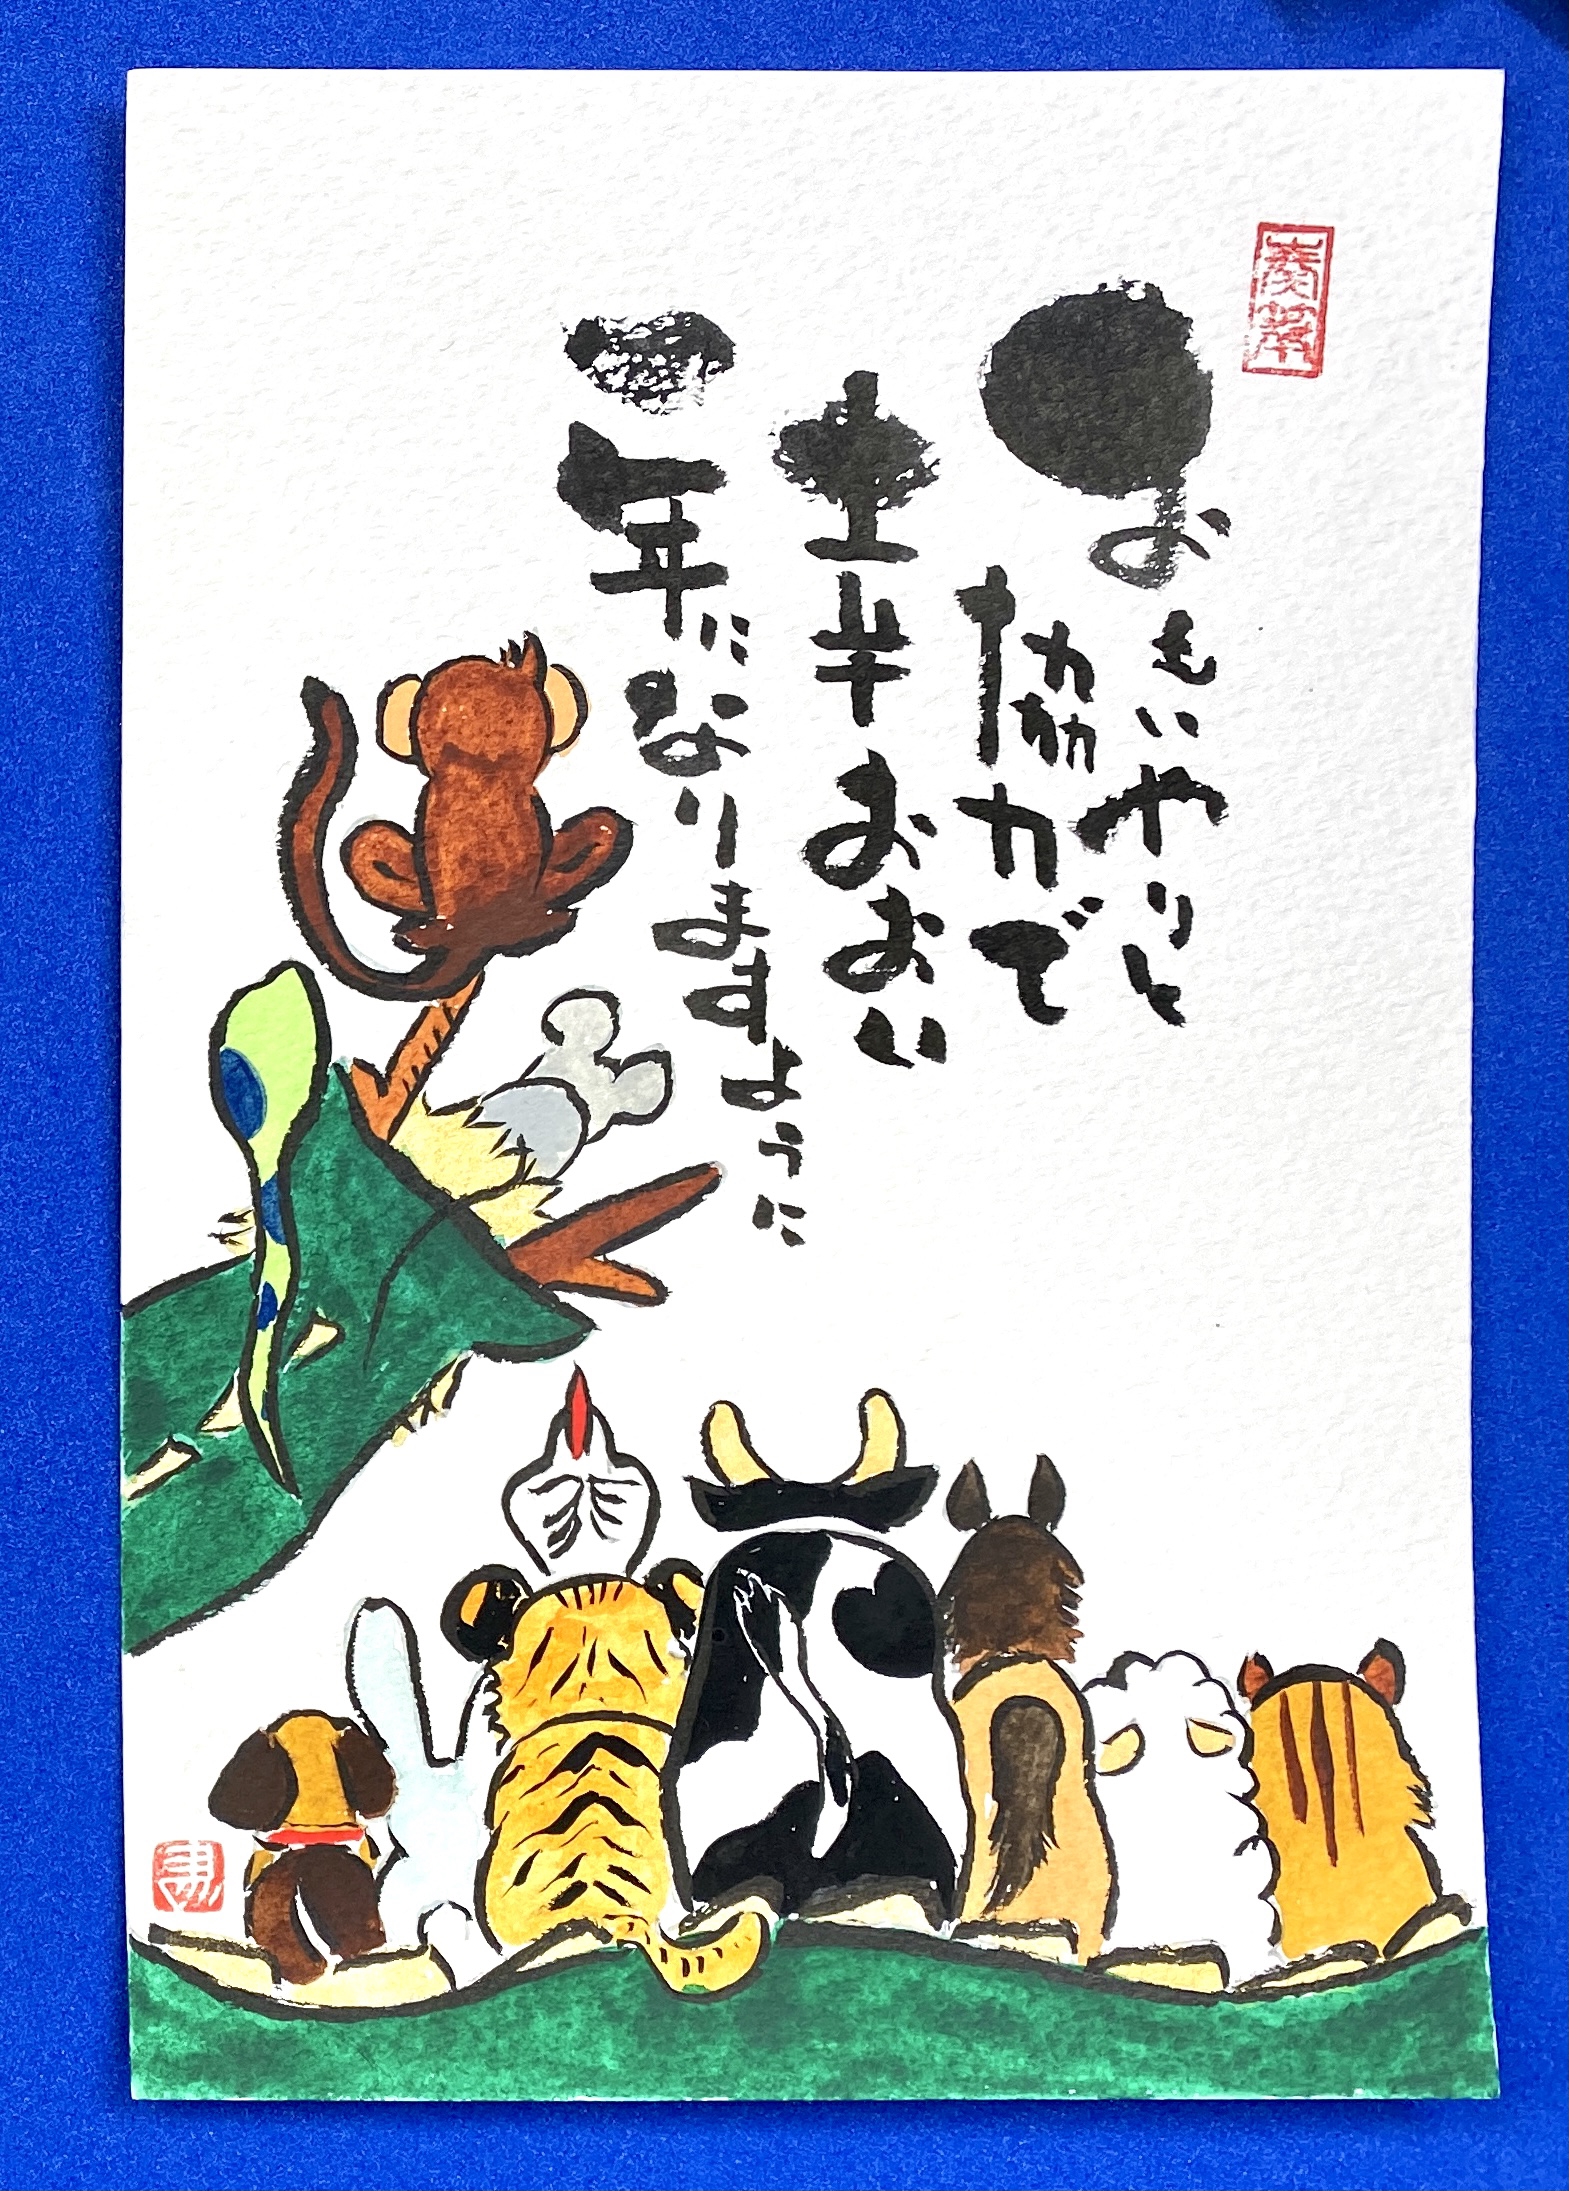 おもいやりと
協力で
幸おおい
一年になりますように